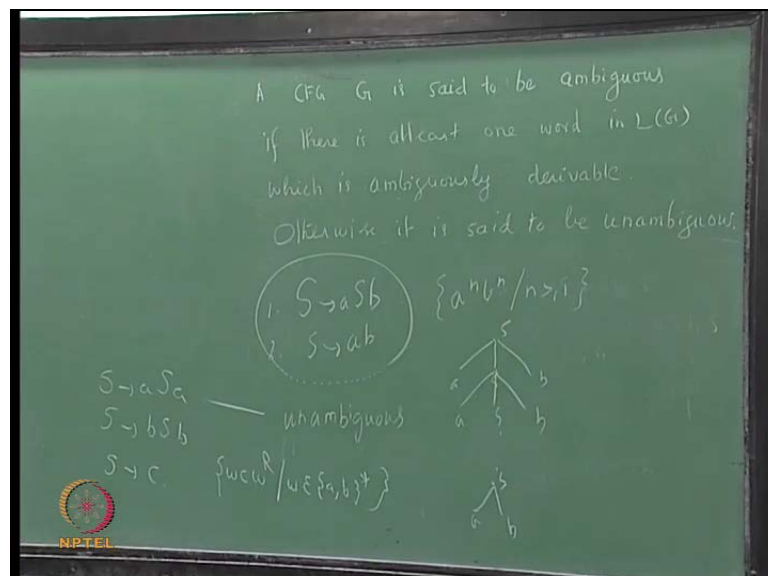 A CFG G is said to be ambiguous
if there is atleast one word in L(G)
which is ambiguously derivable.
Otherwise it is said to be unambiguous.
1. S→aSb {aⁿbⁿ/n>,1}
2. S→ab
S
a S b
a S b
S→aSa
S→bSb unambiguous
S→c {wcwᴿ/w∈{a,b}*}
S
a b
NPTEL